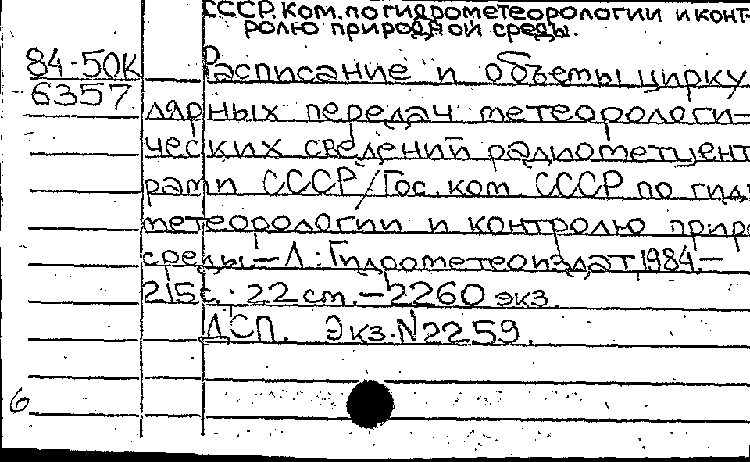 СССР. Ком. по гидрометеорологии и конт-
ролю природной среды.
84-50к Расписание и объемы цирку
6357 лярных передач метеорологи-
ческих сведений радиометцент
рами СССР/Гос. ком СССР по гид
метеорологии и контролю прир
среды - Л.: Гидрометеоиздат 1984.-
215с. 22 см. - 2260 экз.
ДСП. Экз. N2259.
6